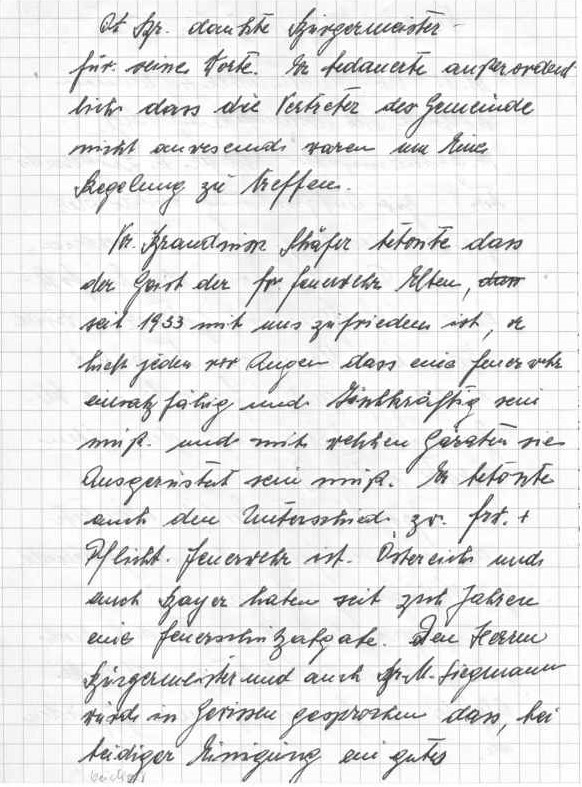 Br. dankte Bürgermeister
für seine Worte. Er bedauerte außerordent
lich dass die Vertreter der Gemeinde
nicht anwesend waren um eine
Regelung zu treffen.
Kr. Brandinsp. Schäfer betonte dass
der Geist der fr Feuerwehr Elten, ~~dass~~
seit 1933 mit uns zufrieden ist, er
hielt jeden vor Augen dass eine Feuerwehr
einsatzfähig und Schlkräftig sein
muß. und mit welchen Geräten sie
Ausgerüstet sein muß. Er betonte
auch den Unterschied zw. frw. +
Pflicht. Feuerwehr ist. Östereich und
auch Bayer haben seit zich Jahren
eine Feuerschutzabgabe. Den Herren
Bürgermeister und auch Br. M. Siegmann
würde in Gewissen gesprochen dass, bei
beidiger Einigung ein gutes